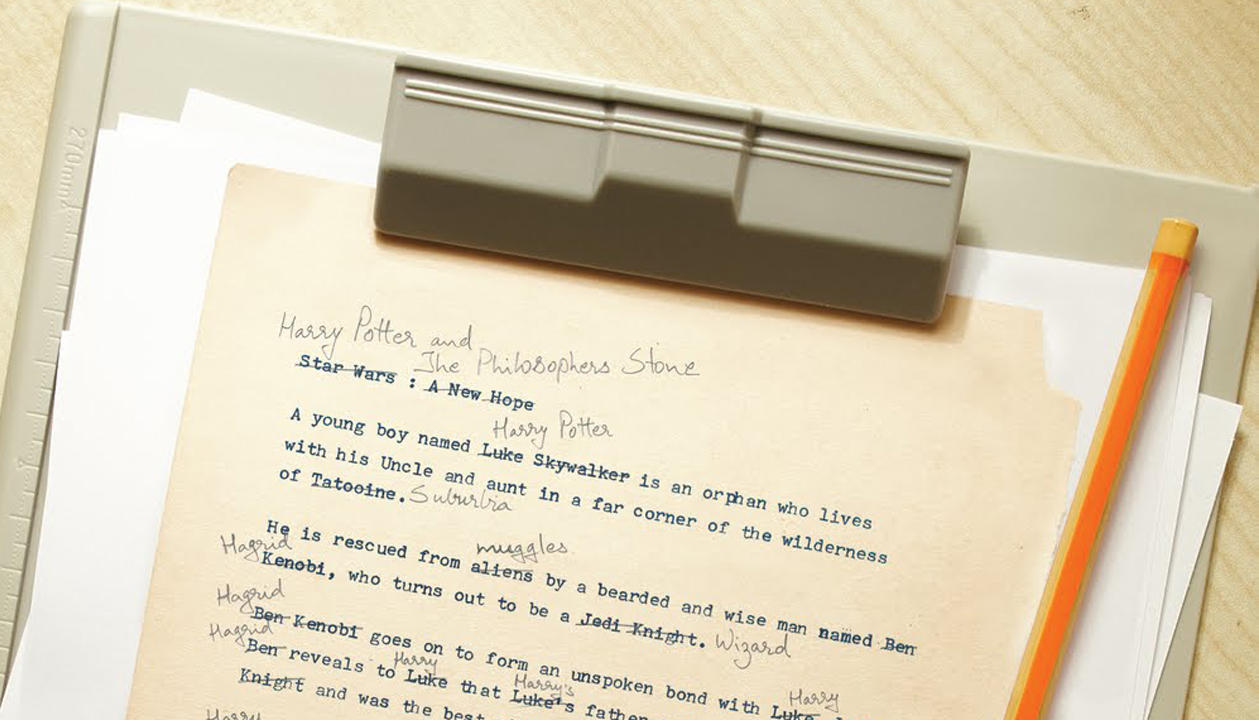 270mm
Harry Potter and
The Philosophers Stone
Star Wars : A New Hope
Harry Potter
A young boy named Luke Skywalker is an orphan who lives
with his Uncle and aunt in a far corner of the wilderness
of Tatooine. Suburbia
muggles
He is rescued from aliens by a bearded and wise man named Ben
Hagrid
Kenobi, who turns out to be a Jedi Knight. Wizard
Hagrid
Ben Kenobi goes on to form an unspoken bond with Luke
Harry
Hagrid Harry Harry's
Ben reveals to Luke that Luke's father
Knight and was the best
Harry